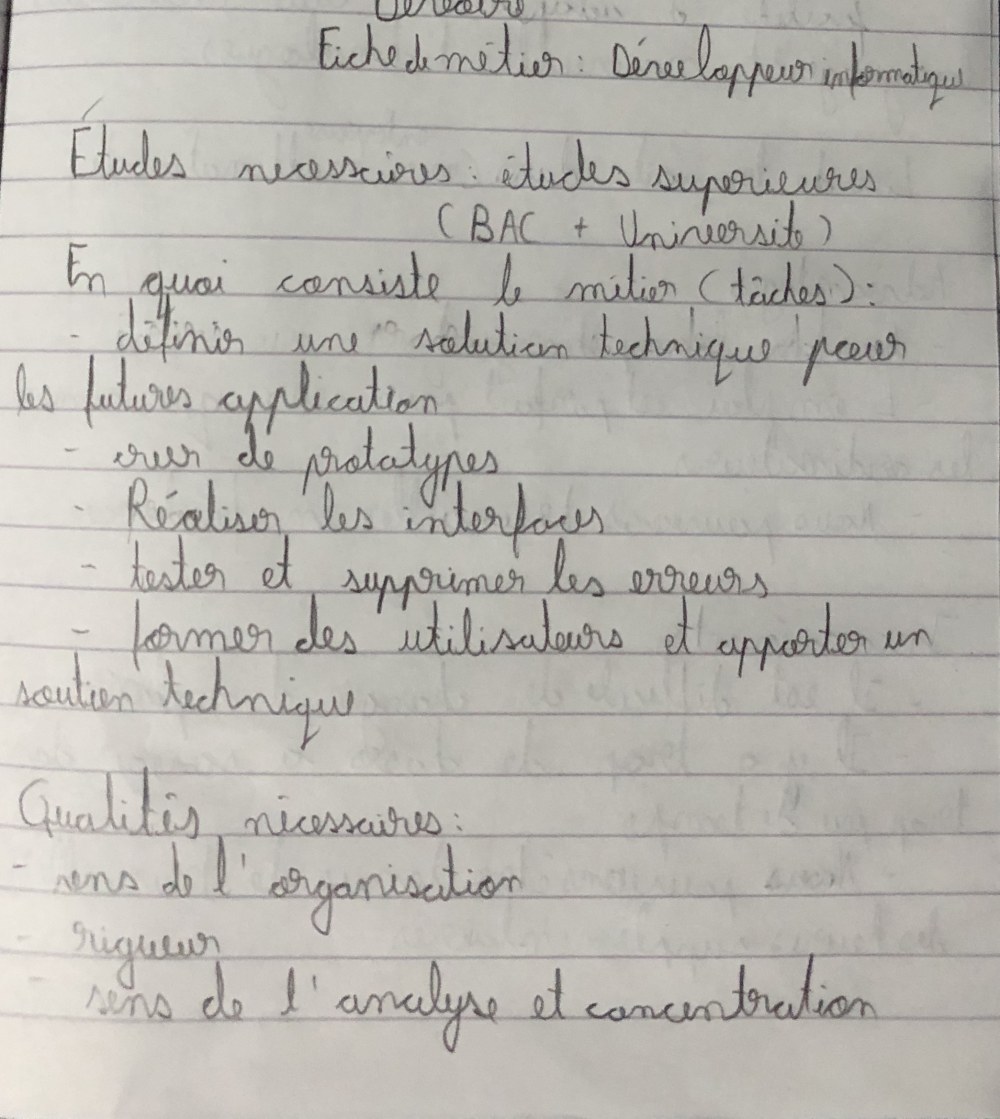 Devoirs
Fiche de métier : Développeur informatique
Études necessaires : études superieures
(BAC + Université)
En quoi consiste le métier (tâches) :
- définir une solution technique pour
les futures application
- creer de prototypes
- Réaliser les interfaces
- tester et supprimer les erreurs
- former des utilisateurs et apporter un
soutien technique
Qualités nécessaires :
- sens de l'organisation
- rigueur
- sens de l'analyse et concentration